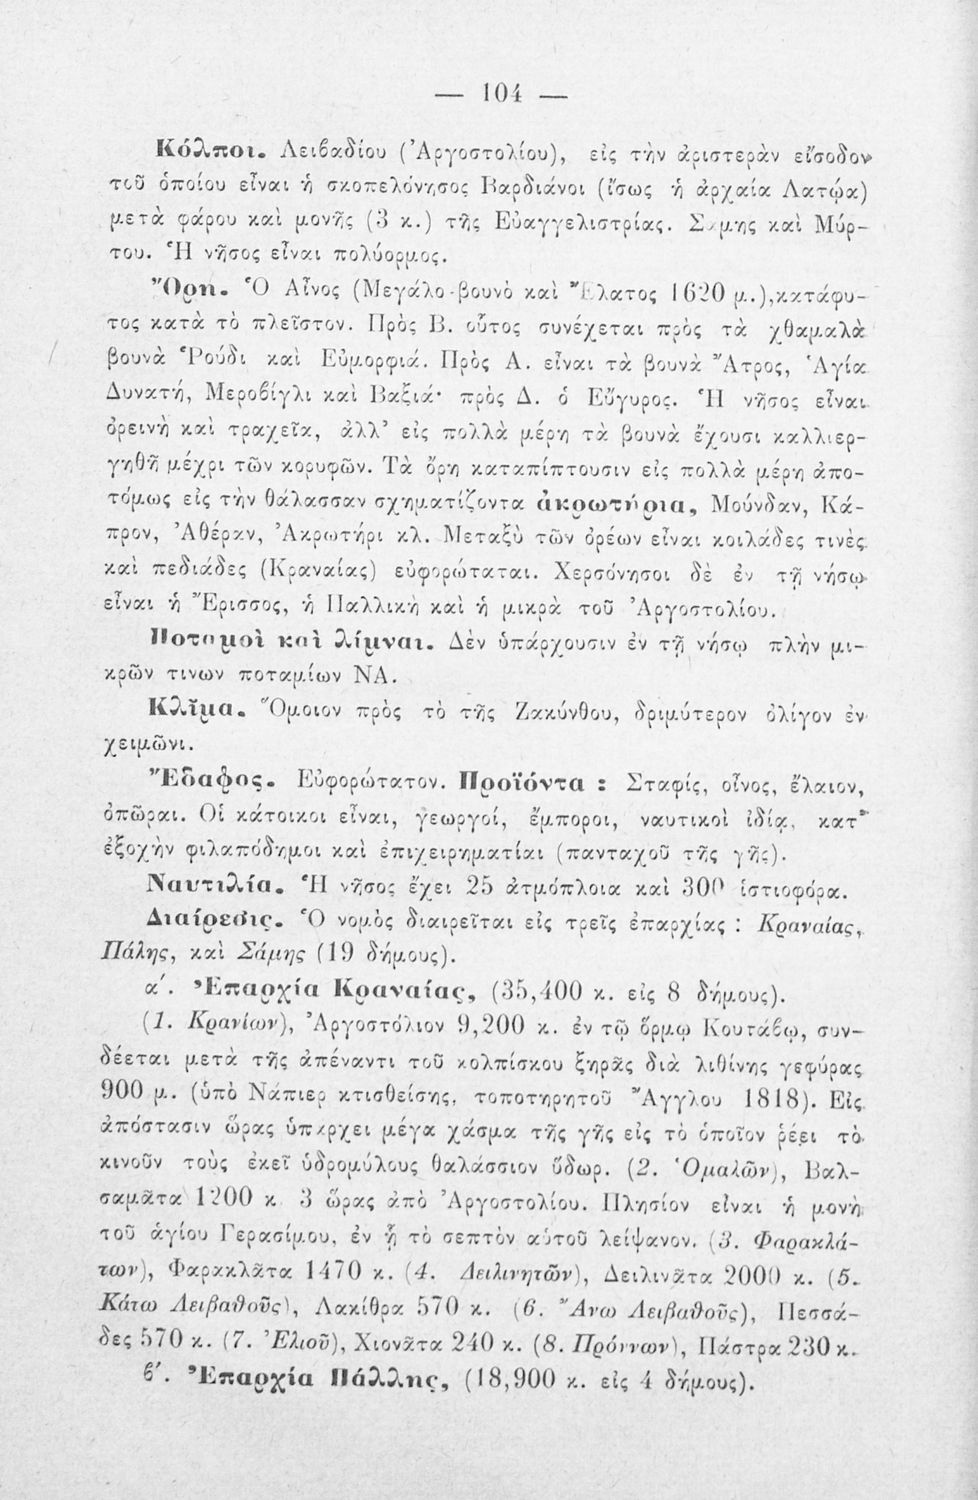 — 104 —
Κόλποι. Λειβαδίου (Ἀργοστολίου), εἰς τὴν ἀριστερὰν εἴσοδον
τοῦ ὁποίου εἶναι ἡ σκοπελόνησος Βαρδιάνοι (ἴσως ἡ ἀρχαία Λατῴα)
μετὰ φάρου καὶ μονῆς (3 κ.) τῆς Εὐαγγελιστρίας. Σάμης καὶ Μύρ-
του. Ἡ νῆσος εἶναι πολύορμος.
Ὄρη. Ὁ Αἶνος (Μεγάλο-βουνὸ καὶ Ἔλατος 1620 μ.),κατάφυ-
τος κατὰ τὸ πλεῖστον. Πρὸς Β. οὗτος συνέχεται πρὸς τὰ χθαμαλὰ
βουνὰ Ῥούδι καὶ Εὐμορφιά. Πρὸς Α. εἶναι τὰ βουνὰ Ἄτρος, Ἁγία
Δυνατή, Μεροβίγλι καὶ Βαξιά· πρὸς Δ. ὁ Εὔγυρος. Ἡ νῆσος εἶναι
ὀρεινὴ καὶ τραχεῖα, ἀλλ' εἰς πολλὰ μέρη τὰ βουνὰ ἔχουσι καλλιερ-
γηθῆ μέχρι τῶν κορυφῶν. Τὰ ὄρη καταπίπτουσιν εἰς πολλὰ μέρη ἀπο-
τόμως εἰς τὴν θάλασσαν σχηματίζοντα ἀκρωτήρια, Μούνδαν, Κά-
προν, Ἀθέραν, Ἀκρωτήρι κλ. Μεταξὺ τῶν ὀρέων εἶναι κοιλάδες τινὲς
καὶ πεδιάδες (Κραναίας) εὐφορώταται. Χερσόνησοι δὲ ἐν τῇ νήσῳ
εἶναι ἡ Ἔρισσος, ἡ Παλλικὴ καὶ ἡ μικρὰ τοῦ Ἀργοστολίου.
Ποταμοὶ καὶ λίμναι. Δὲν ὑπάρχουσιν ἐν τῇ νήσῳ πλὴν μι-
κρῶν τινων ποταμίων ΝΑ.
Κλῖμα. Ὅμοιον πρὸς τὸ τῆς Ζακύνθου, δριμύτερον ὀλίγον ἐν
χειμῶνι.
Ἔδαφος. Εὐφορώτατον. Προϊόντα : Σταφίς, οἶνος, ἔλαιον,
ὀπῶραι. Οἱ κάτοικοι εἶναι, γεωργοί, ἔμποροι, ναυτικοὶ ἰδίᾳ, κατ'
ἐξοχὴν φιλαπόδημοι καὶ ἐπιχειρηματίαι (πανταχοῦ τῆς γῆς).
Ναυτιλία. Ἡ νῆσος ἔχει 25 ἀτμόπλοια καὶ 300 ἱστιοφόρα.
Διαίρεσις. Ὁ νομὸς διαιρεῖται εἰς τρεῖς ἐπαρχίας : Κραναίας,
Πάλης, καὶ Σάμης (19 δήμους).
α΄. Ἐπαρχία Κραναίας, (35,400 κ. εἰς 8 δήμους).
(1. Κρανίων), Ἀργοστόλιον 9,200 κ. ἐν τῷ ὅρμῳ Κουτάβῳ, συν-
δέεται μετὰ τῆς ἀπέναντι τοῦ κολπίσκου ξηρᾶς διὰ λιθίνης γεφύρας
900 μ. (ὑπὸ Νάπιερ κτισθείσης, τοποτηρητοῦ Ἄγγλου 1818). Εἰς
ἀπόστασιν ὥρας ὑπάρχει μέγα χάσμα τῆς γῆς εἰς τὸ ὁποῖον ῥέει τὸ
κινοῦν τοὺς ἐκεῖ ὑδρομύλους θαλάσσιον ὕδωρ. (2. Ὁμαλῶν), Βαλ-
σαμᾶτα 1200 κ 3 ὥρας ἀπὸ Ἀργοστολίου. Πλησίον εἶναι ἡ μονὴ
τοῦ ἁγίου Γερασίμου, ἐν ᾗ τὸ σεπτὸν αὐτοῦ λείψανον. (3. Φαρακλά-
των), Φαρακλᾶτα 1470 κ. (4. Δειλινητῶν), Δειλινᾶτα 2000 κ. (5.
Κάτω Λειβαθοῦς), Λακίθρα 570 κ. (6. Ἄνω Λειβαθοῦς), Πεσσά-
δες 570 κ. (7. Ἐλιοῦ), Χιονᾶτα 240 κ. (8. Πρόννων), Πάστρα 230 κ.
β΄. Ἐπαρχία Πάλλης, (18,900 κ. εἰς 4 δήμους).